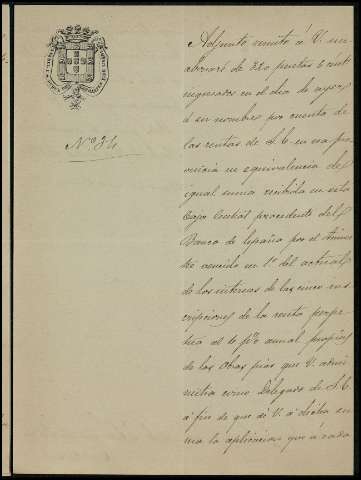 Nº 34
Adjunto remito á V. un
abonaré de 320 pesetas 6 cent
ingresados en el dia de ayer
á su nombre por cuenta de
las rentas de S. E. en esa pro
vincia en equivalencia de
igual suma recibida en esta
Caja Central procedente del
Banco de España por el trimes
tre vencido en 1º del actual
de los intereses de las cinco ins
cripciones de la renta perpe
tua al 4 p% anual propias
de las Obras pias que V. admi
nistra como Delegado de S. E.
á fin de que dé V. á dicha su
ma la aplicacion que á cada